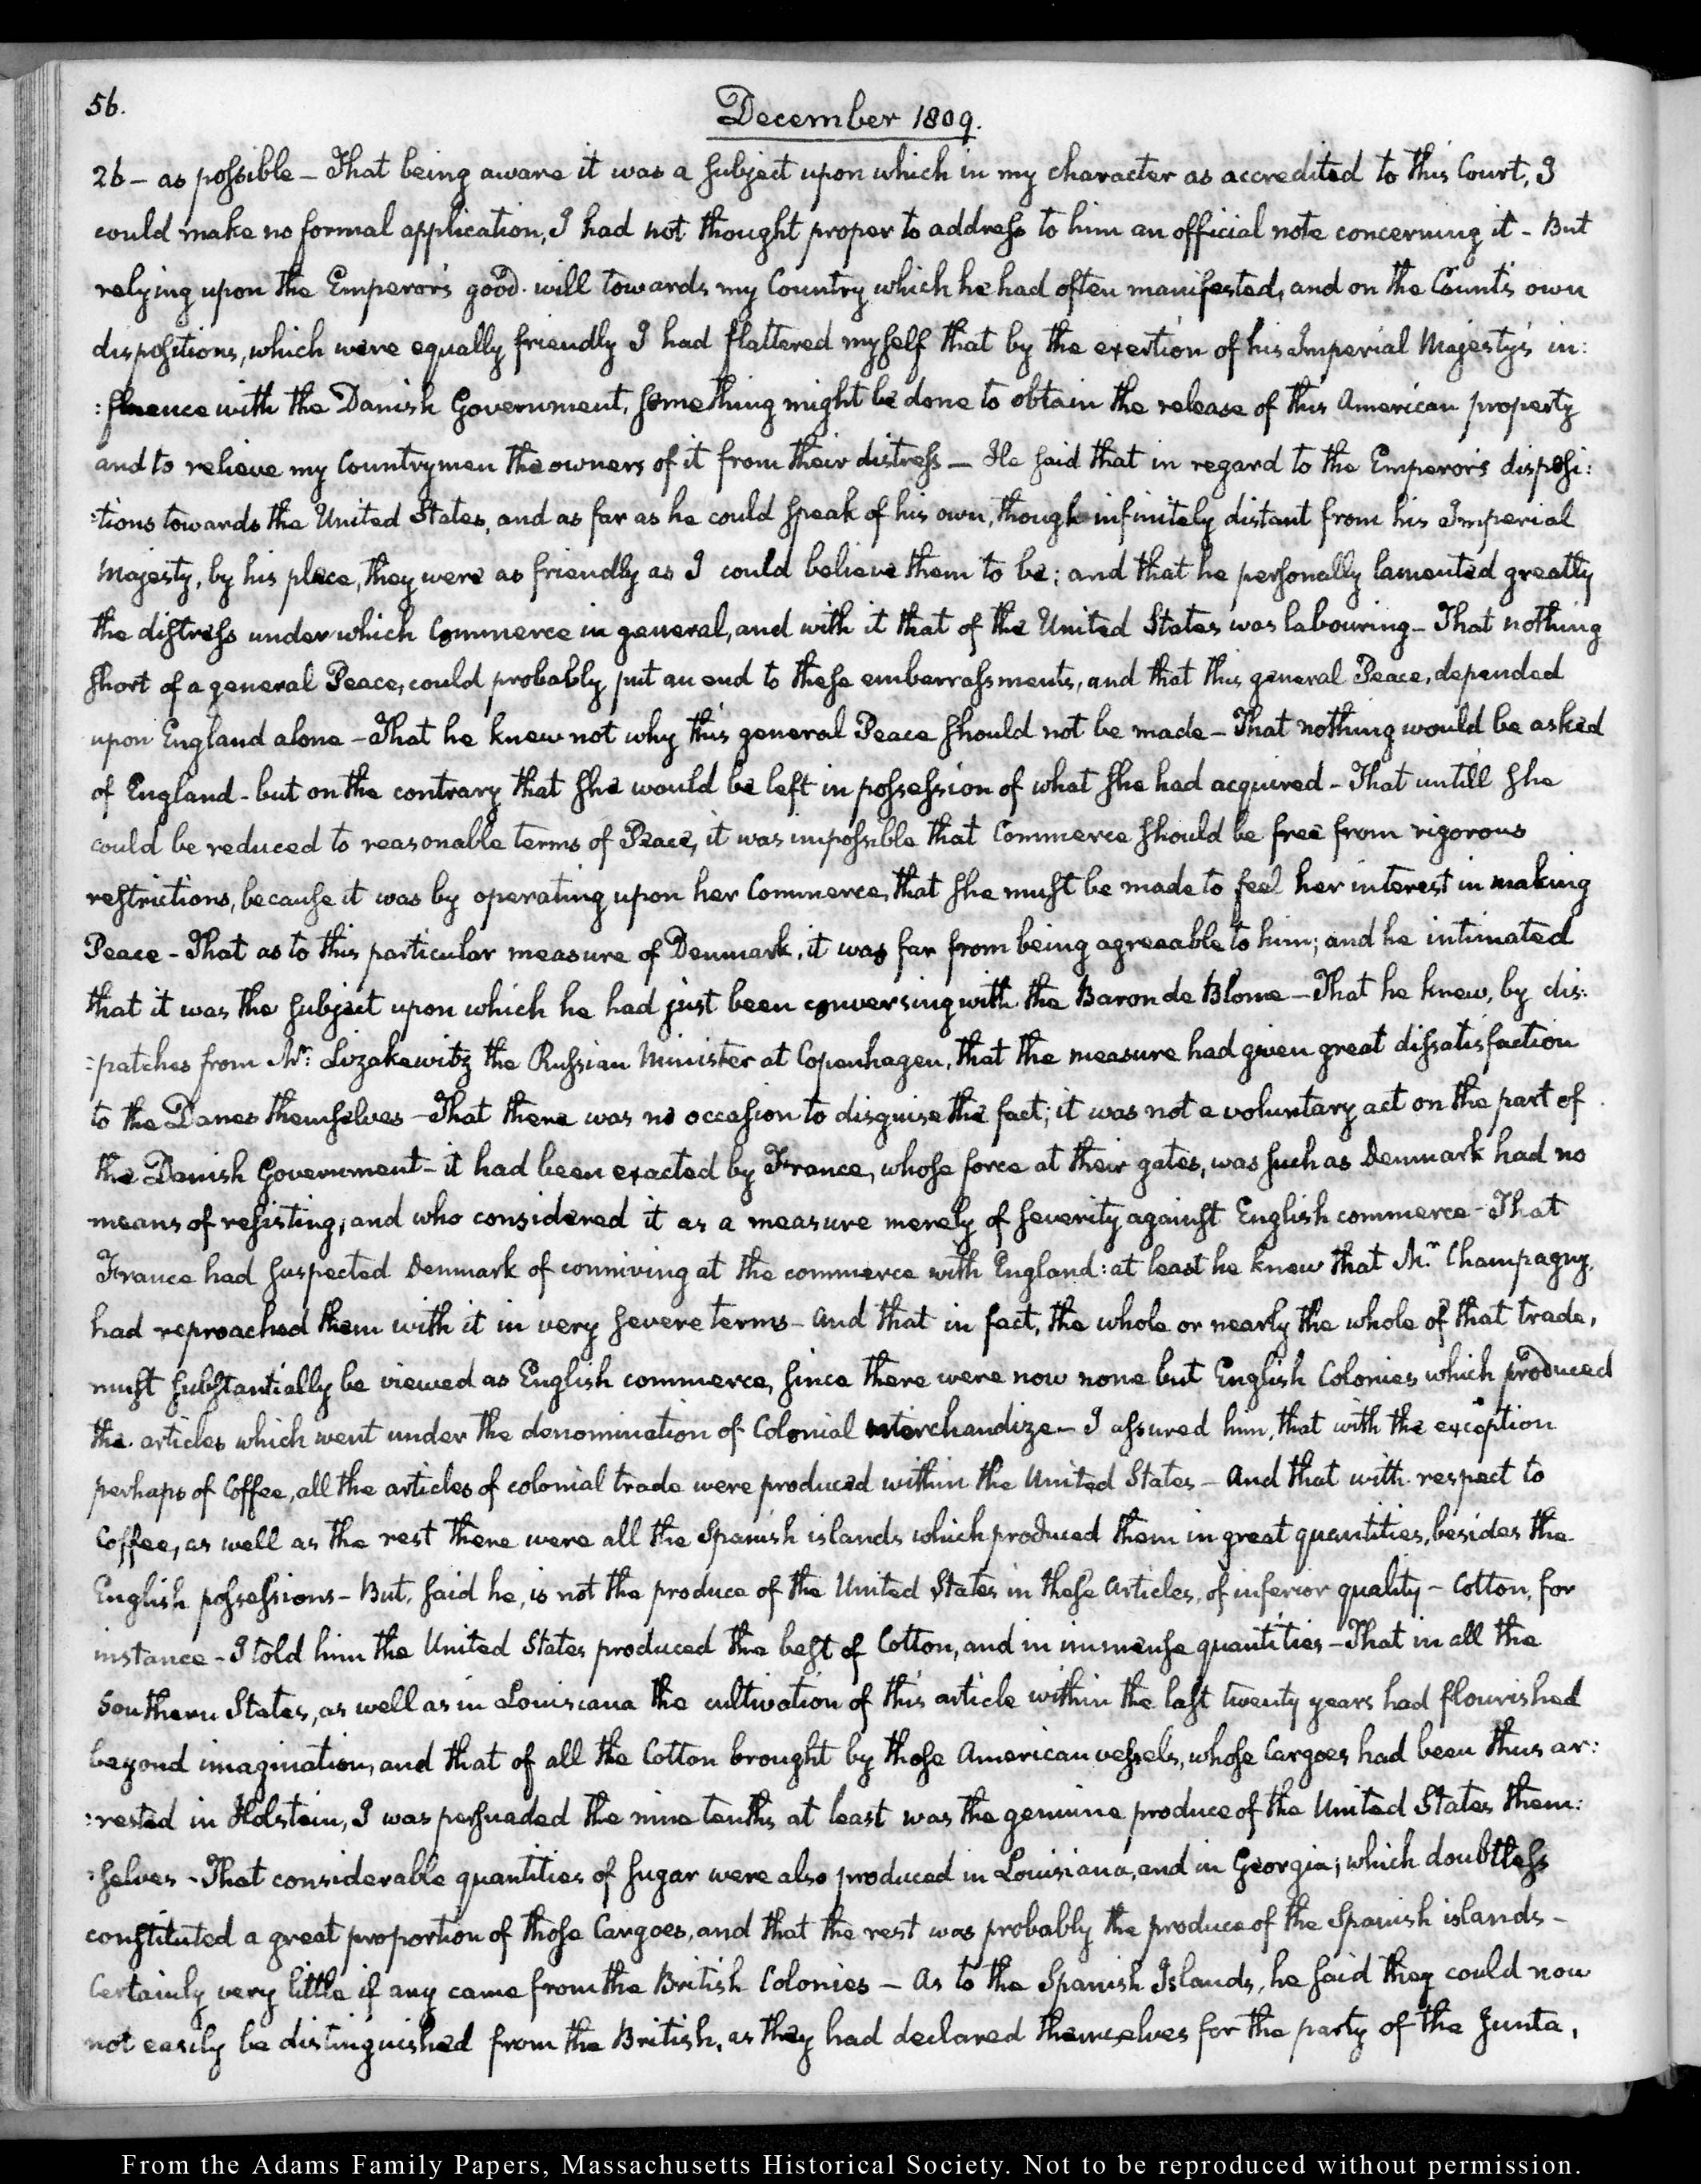 56.
December 1809.
26 – as possible – That being aware it was a subject upon which in my character as accredited to this Court, I
could make no formal application, I had not thought proper to address to him an official note concerning it – But
relying upon the Emperor's good will towards my Country which he had often manifested, and on the Count's own
dispositions, which were equally friendly I had flattered myself that by the exertion of his Imperial Majesty's in:
:fluence with the Danish Government, something might be done to obtain the release of this American property
and to relieve my Countrymen the owners of it from their distress – He said that in regard to the Emperor's disposi:
:tions towards the United States, and as far as he could speak of his own, though infinitely distant from his Imperial
Majesty, by his place, they were as friendly as I could believe them to be; and that he personally lamented greatly
the distress under which Commerce in general, and with it that of the United States was labouring – That nothing
short of a general Peace, could probably put an end to these embarrassments, and that this general Peace, depended
upon England alone – That he knew not why this general Peace should not be made – That nothing would be asked
of England – but on the contrary that she would be left in possession of what she had acquired – That untill she
could be reduced to reasonable terms of Peace, it was impossible that Commerce should be free from rigorous
restrictions, because it was by operating upon her Commerce, that she must be made to feel her interest in making
Peace – That as to this particular measure of Denmark, it was far from being agreeable to him; and he intimated
that it was the subject upon which he had just been conversing with the Baron de Blome – That he knew, by dis:
:patches from Mr: Lizakewitz the Russian Minister at Copenhagen, that the measure had given great dissatisfaction
to the Danes themselves – That there was no occasion to disguise the fact; it was not a voluntary act on the part of
the Danish Government – it had been exacted by France, whose force at their gates, was such as Denmark had no
means of resisting; and who considered it as a measure merely of severity against English commerce – That
France had suspected Denmark of conniving at the commerce with England: at least he knew that Mr. Champagny,
had reproached them with it in very severe terms – And that in fact, the whole or nearly the whole of that trade,
must substantially be viewed as English commerce, since there were now none but English Colonies which produced
the articles which went under the denomination of Colonial merchandize – I assured him, that with the exception
perhaps of Coffee, all the articles of colonial trade were produced within the United States – And that with respect to
Coffee, as well as the rest there were all the Spanish islands which produced them in great quantities, besides the
English possessions – But, said he, is not the produce of the United States in these articles, of inferior quality – Cotton, for
instance – I told him the United States produced the best of Cotton, and in immense quantities – That in all the
Southern States, as well as in Louisiana the cultivation of this article within the last twenty years had flourished
beyond imagination, and that of all the Cotton brought by those American vessels, whose Cargoes had been thus ar:
:rested in Holstein, I was persuaded the nine tenths at least was the genuine produce of the United States them:
:selves – That considerable quantities of sugar were also produced in Louisiana, and in Georgia; which doubtless
constituted a great proportion of those Cargoes, and that the rest was probably the produce of the Spanish islands –
Certainly very little if any came from the British Colonies – As to the Spanish Islands, he said they could now
not easily be distinguished from the British, as they had declared themselves for the party of the Junta,
From the Adams Family Papers, Massachusetts Historical Society. Not to be reproduced without permission.